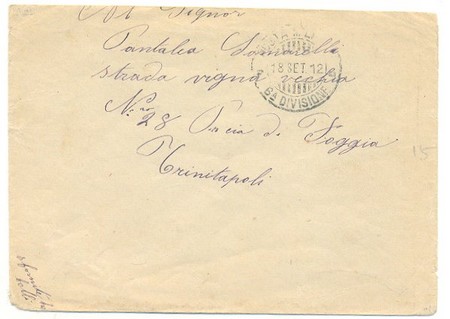 Al Signor
Pantalea Lomarella
strada vigna vecchia
N. 28 Pncia di Foggia
Trinitapoli
18 SET 12
6ª DIVISIONE
15